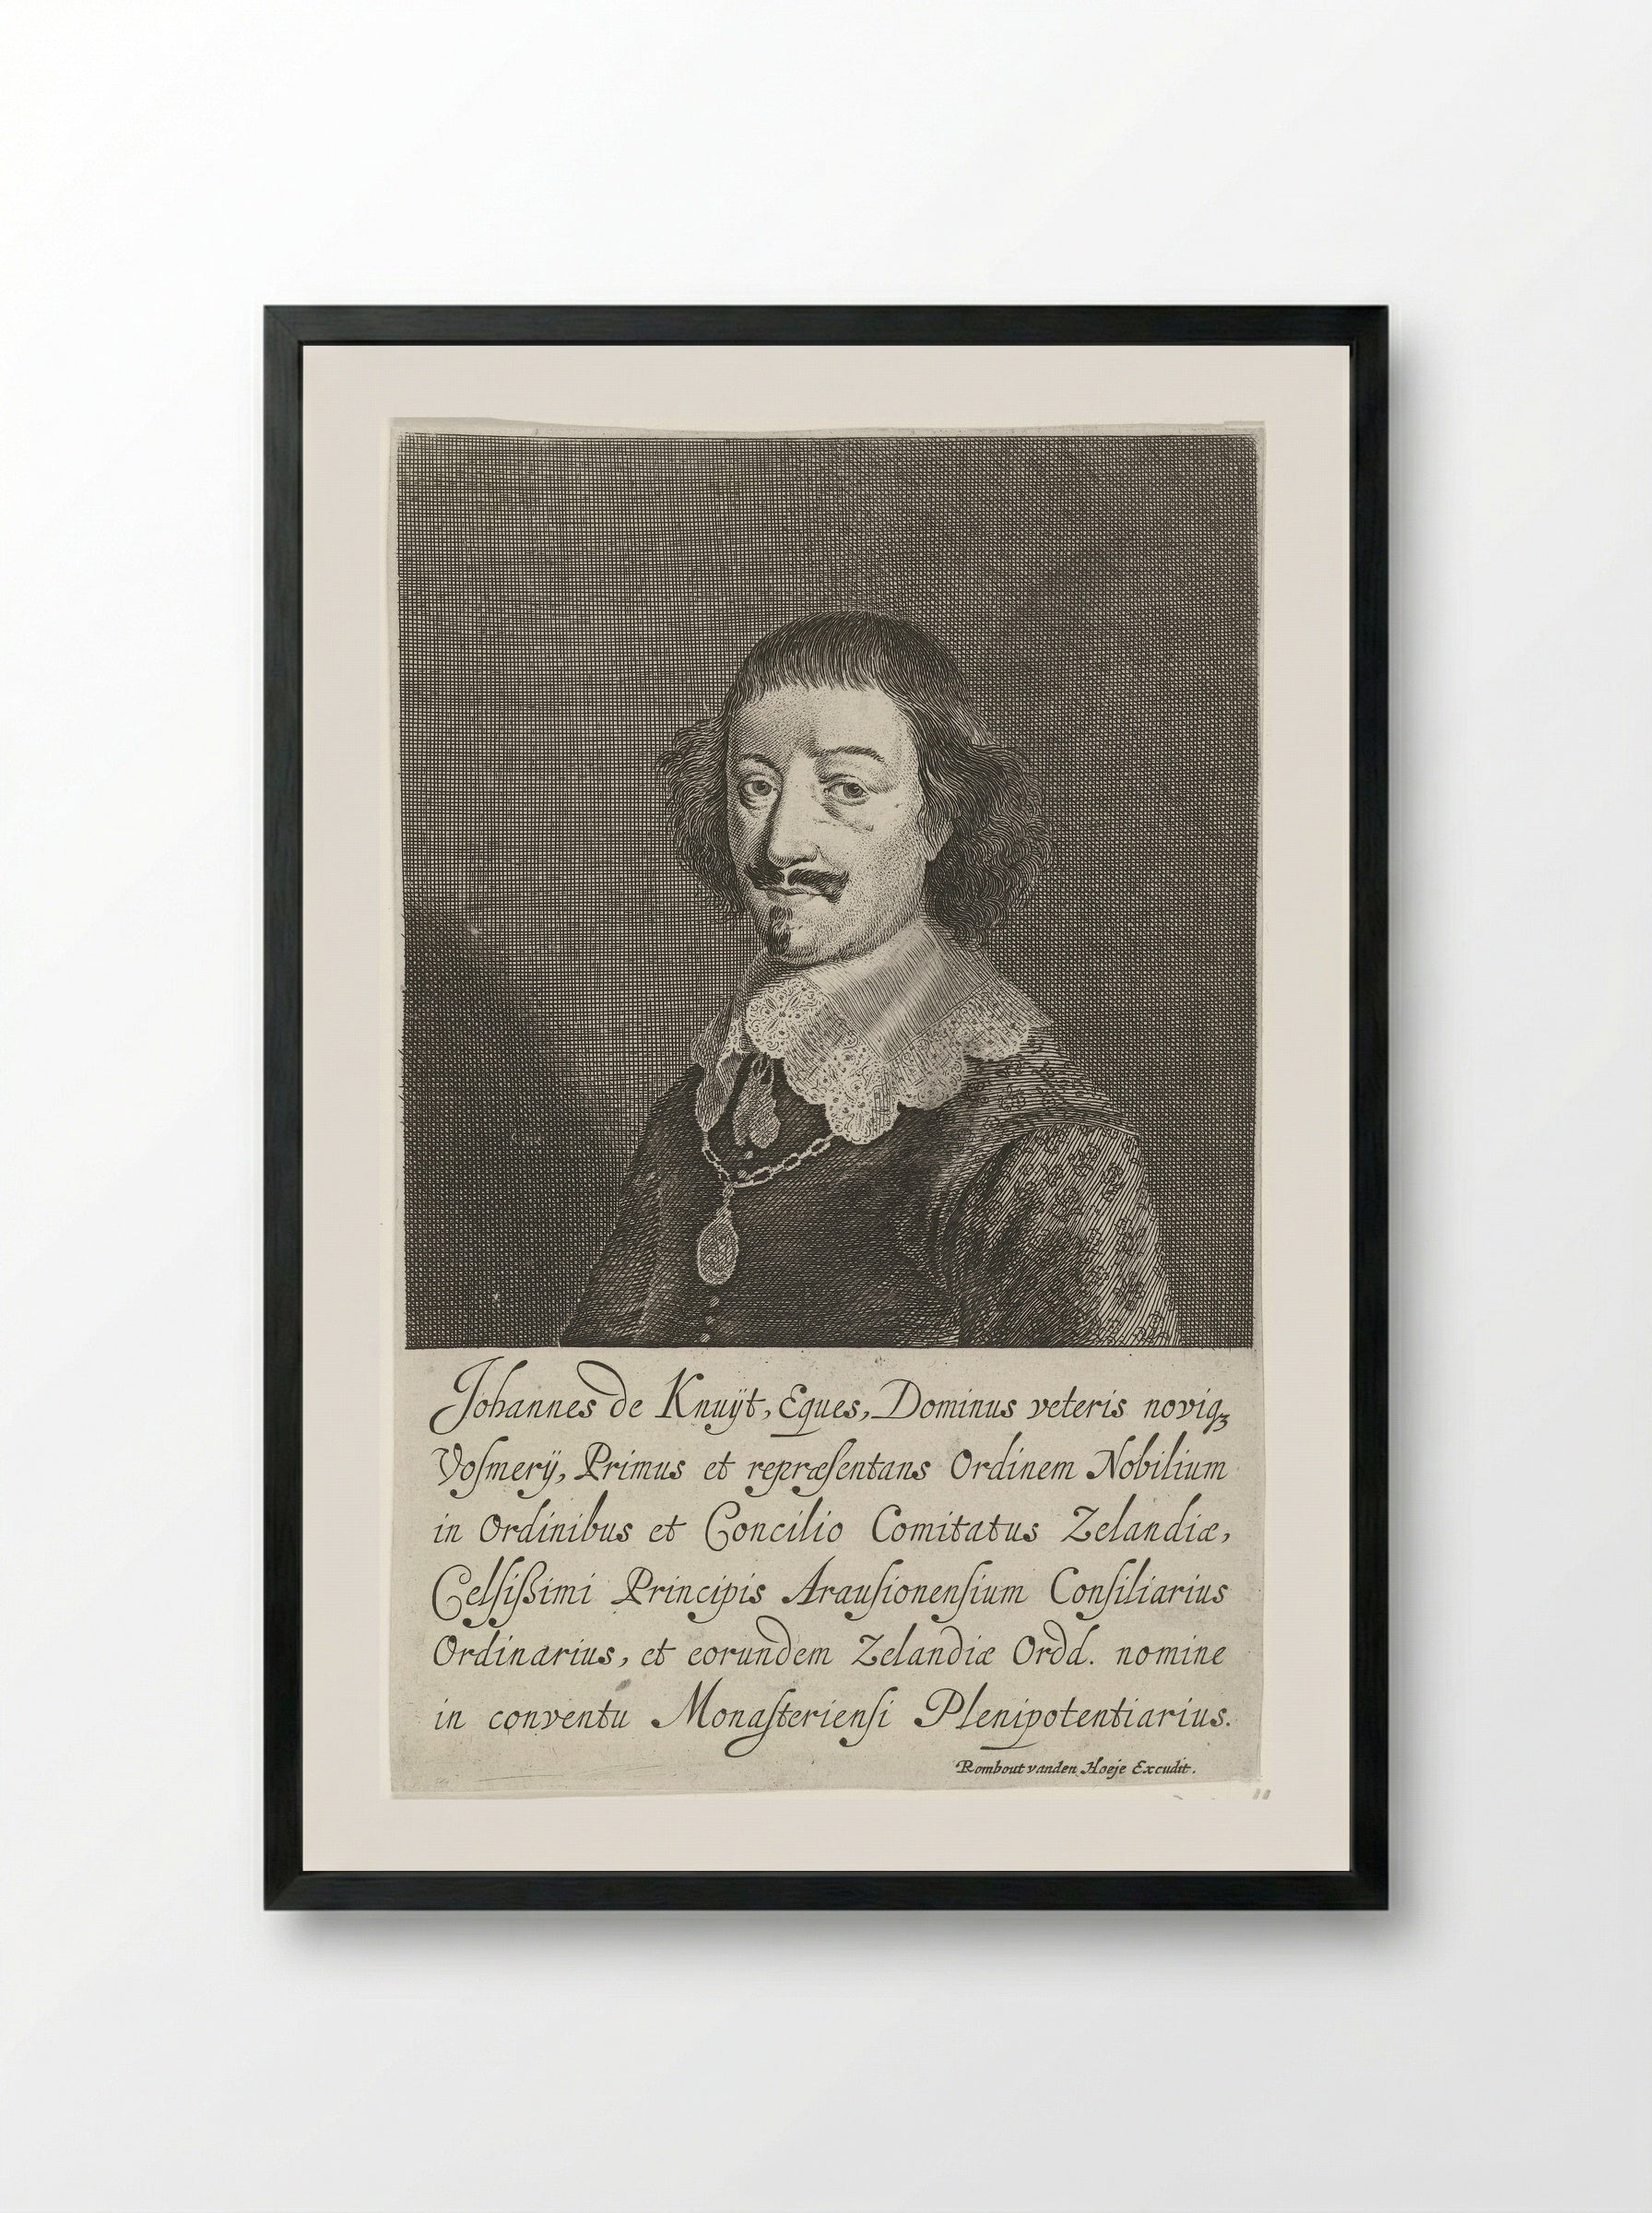 Johannes de Knuÿt, Eques, Dominus veteris noviqꝫ
Voſmerÿ, Primus et repræſentans Ordinem Nobilium
in Ordinibus et Concilio Comitatus Zelandiæ,
Celſiſsimi Principis Arauſionenſium Conſiliarius
Ordinarius, et eorundem Zelandiæ Ordd. nomine
in conventu Monaſterienſi Plenipotentiarius.
Rombout vanden Hoeje Excudit.